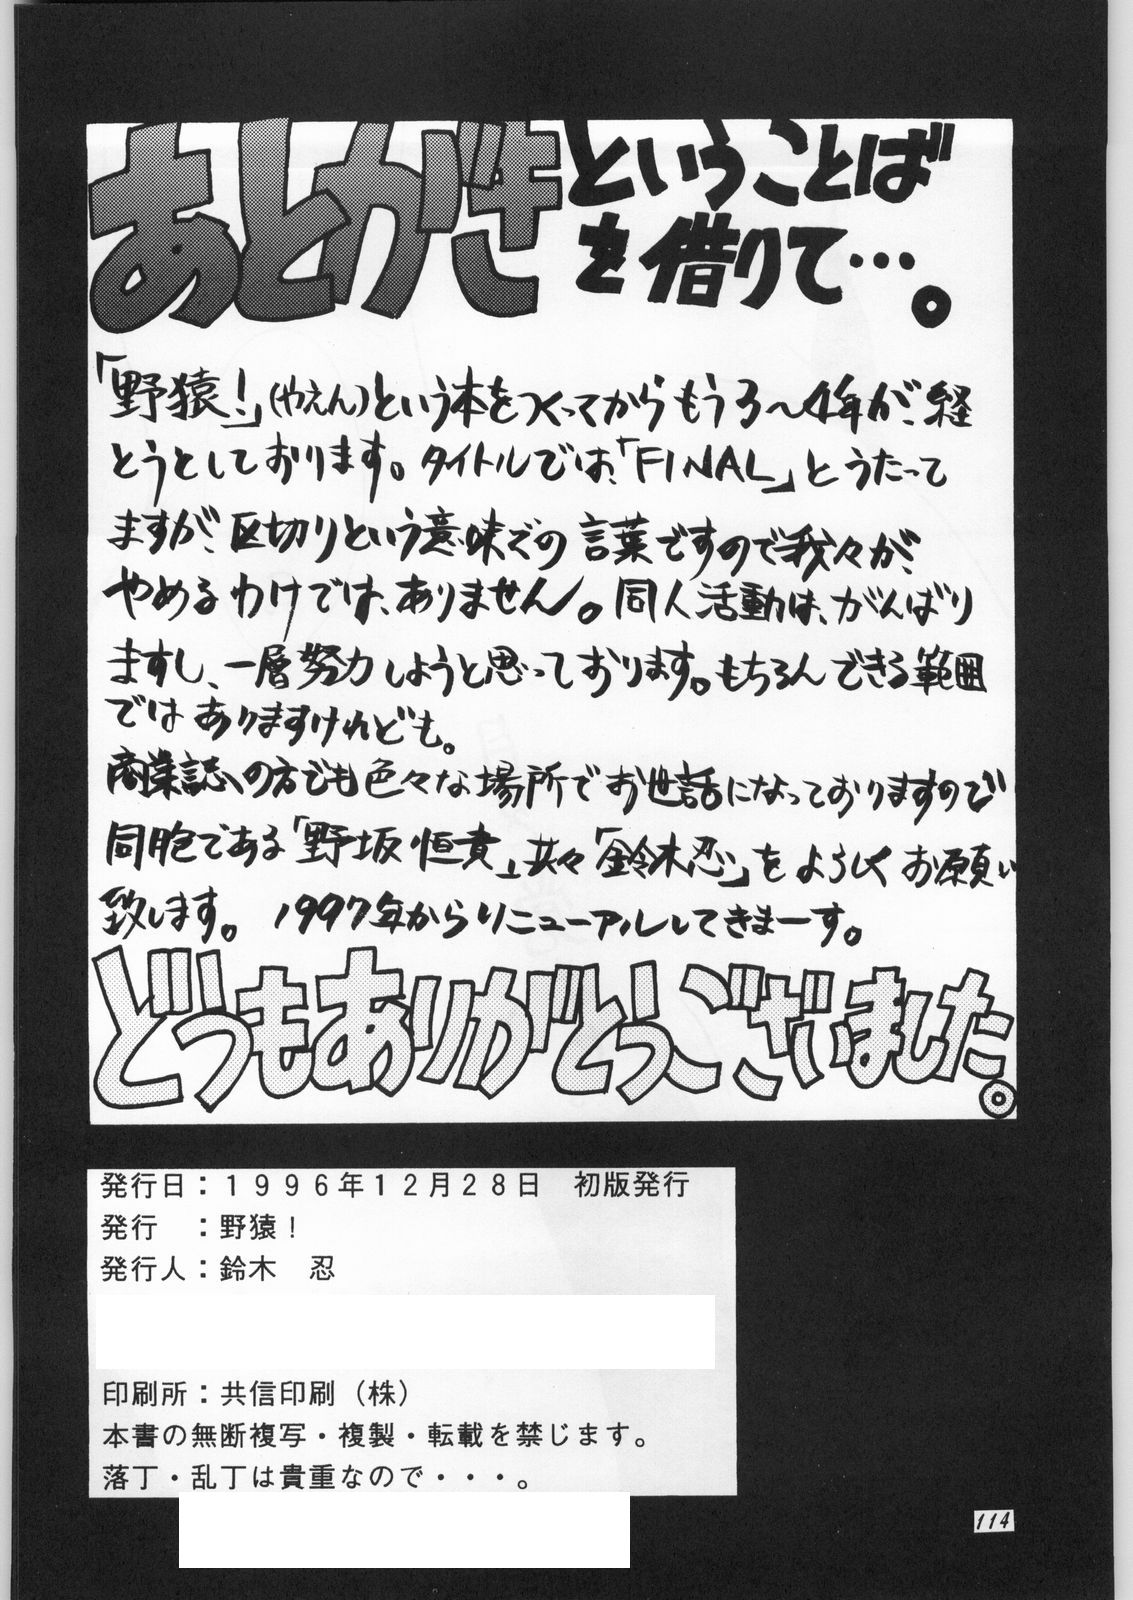 あとがきということば
を借りて…。
「野猿！」(やえん)という本をつくってからもう3〜4年が、経
とうとしております。タイトルでは、「FINAL」とうたって
ますが、区切りという意味での言葉ですので我々が、
やめるわけでは、ありません。同人活動は、がんばり
ますし、一層努力しようと思っております。もちろんできる範囲
ではありますけれども。
商業誌の方でも色々な場所でお世話になっておりますので
同胞である「野坂恒貴」共々「鈴木忍」をよろしくお願い
致します。1997年からリニューアルしてきまーす。
どうもありがとうございました。
発行日：１９９６年１２月２８日　初版発行
発行　：野猿！
発行人：鈴木　忍
印刷所：共信印刷（株）
本書の無断複写・複製・転載を禁じます。
落丁・乱丁は貴重なので・・・。
114